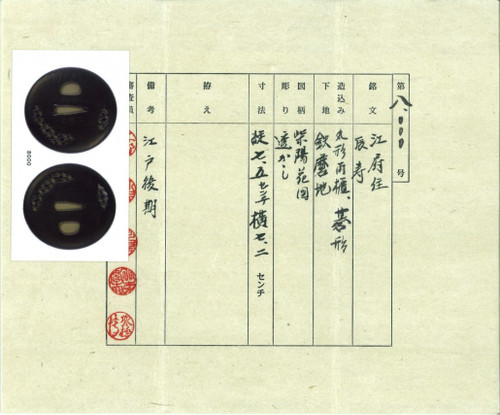 第八、〇〇〇号
銘文 江府住
辰寿
造込み 丸形両櫃、碁形
下地 鉄磨地
図柄 紫陽花図
彫り 透かし
寸法 縦七、五センチ 横七、二センチ
拵え
備考 江戸後期
審査員
8000